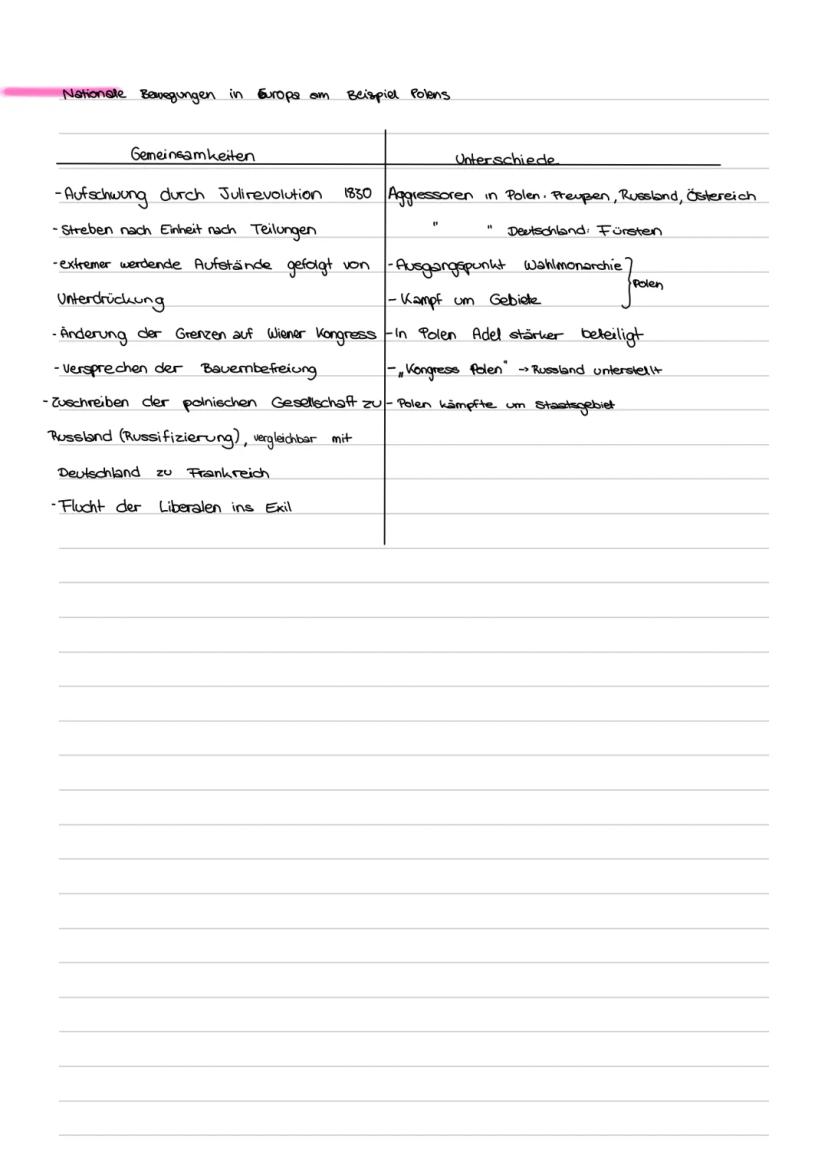 Nationale Bewegungen in Europa am Beispiel Polens
Gemeinsamkeiten
- Aufschwung durch Julirevolution 1830
- Streben nach Einheit nach Teilungen
- extremer werdende Aufstände gefolgt von
Unterdrückung
- Änderung der Grenzen auf Wiener Kongress
- Versprechen der Bauernbefreiung
- Zuschreiben der polnischen Gesellschaft zu
Russland (Russifizierung), vergleichbar mit
Deutschland zu Frankreich
- Flucht der Liberalen ins Exil
Unterschiede
Aggressoren in Polen: Preußen, Russland, Östereich
" " Deutschland: Fürsten
- Ausgangspunkt Wahlmonarchie
- Kampf um Gebiete
} Polen
- In Polen Adel stärker beteiligt
- „Kongress Polen" → Russland unterstellt
- Polen kämpfte um Staatsgebiet